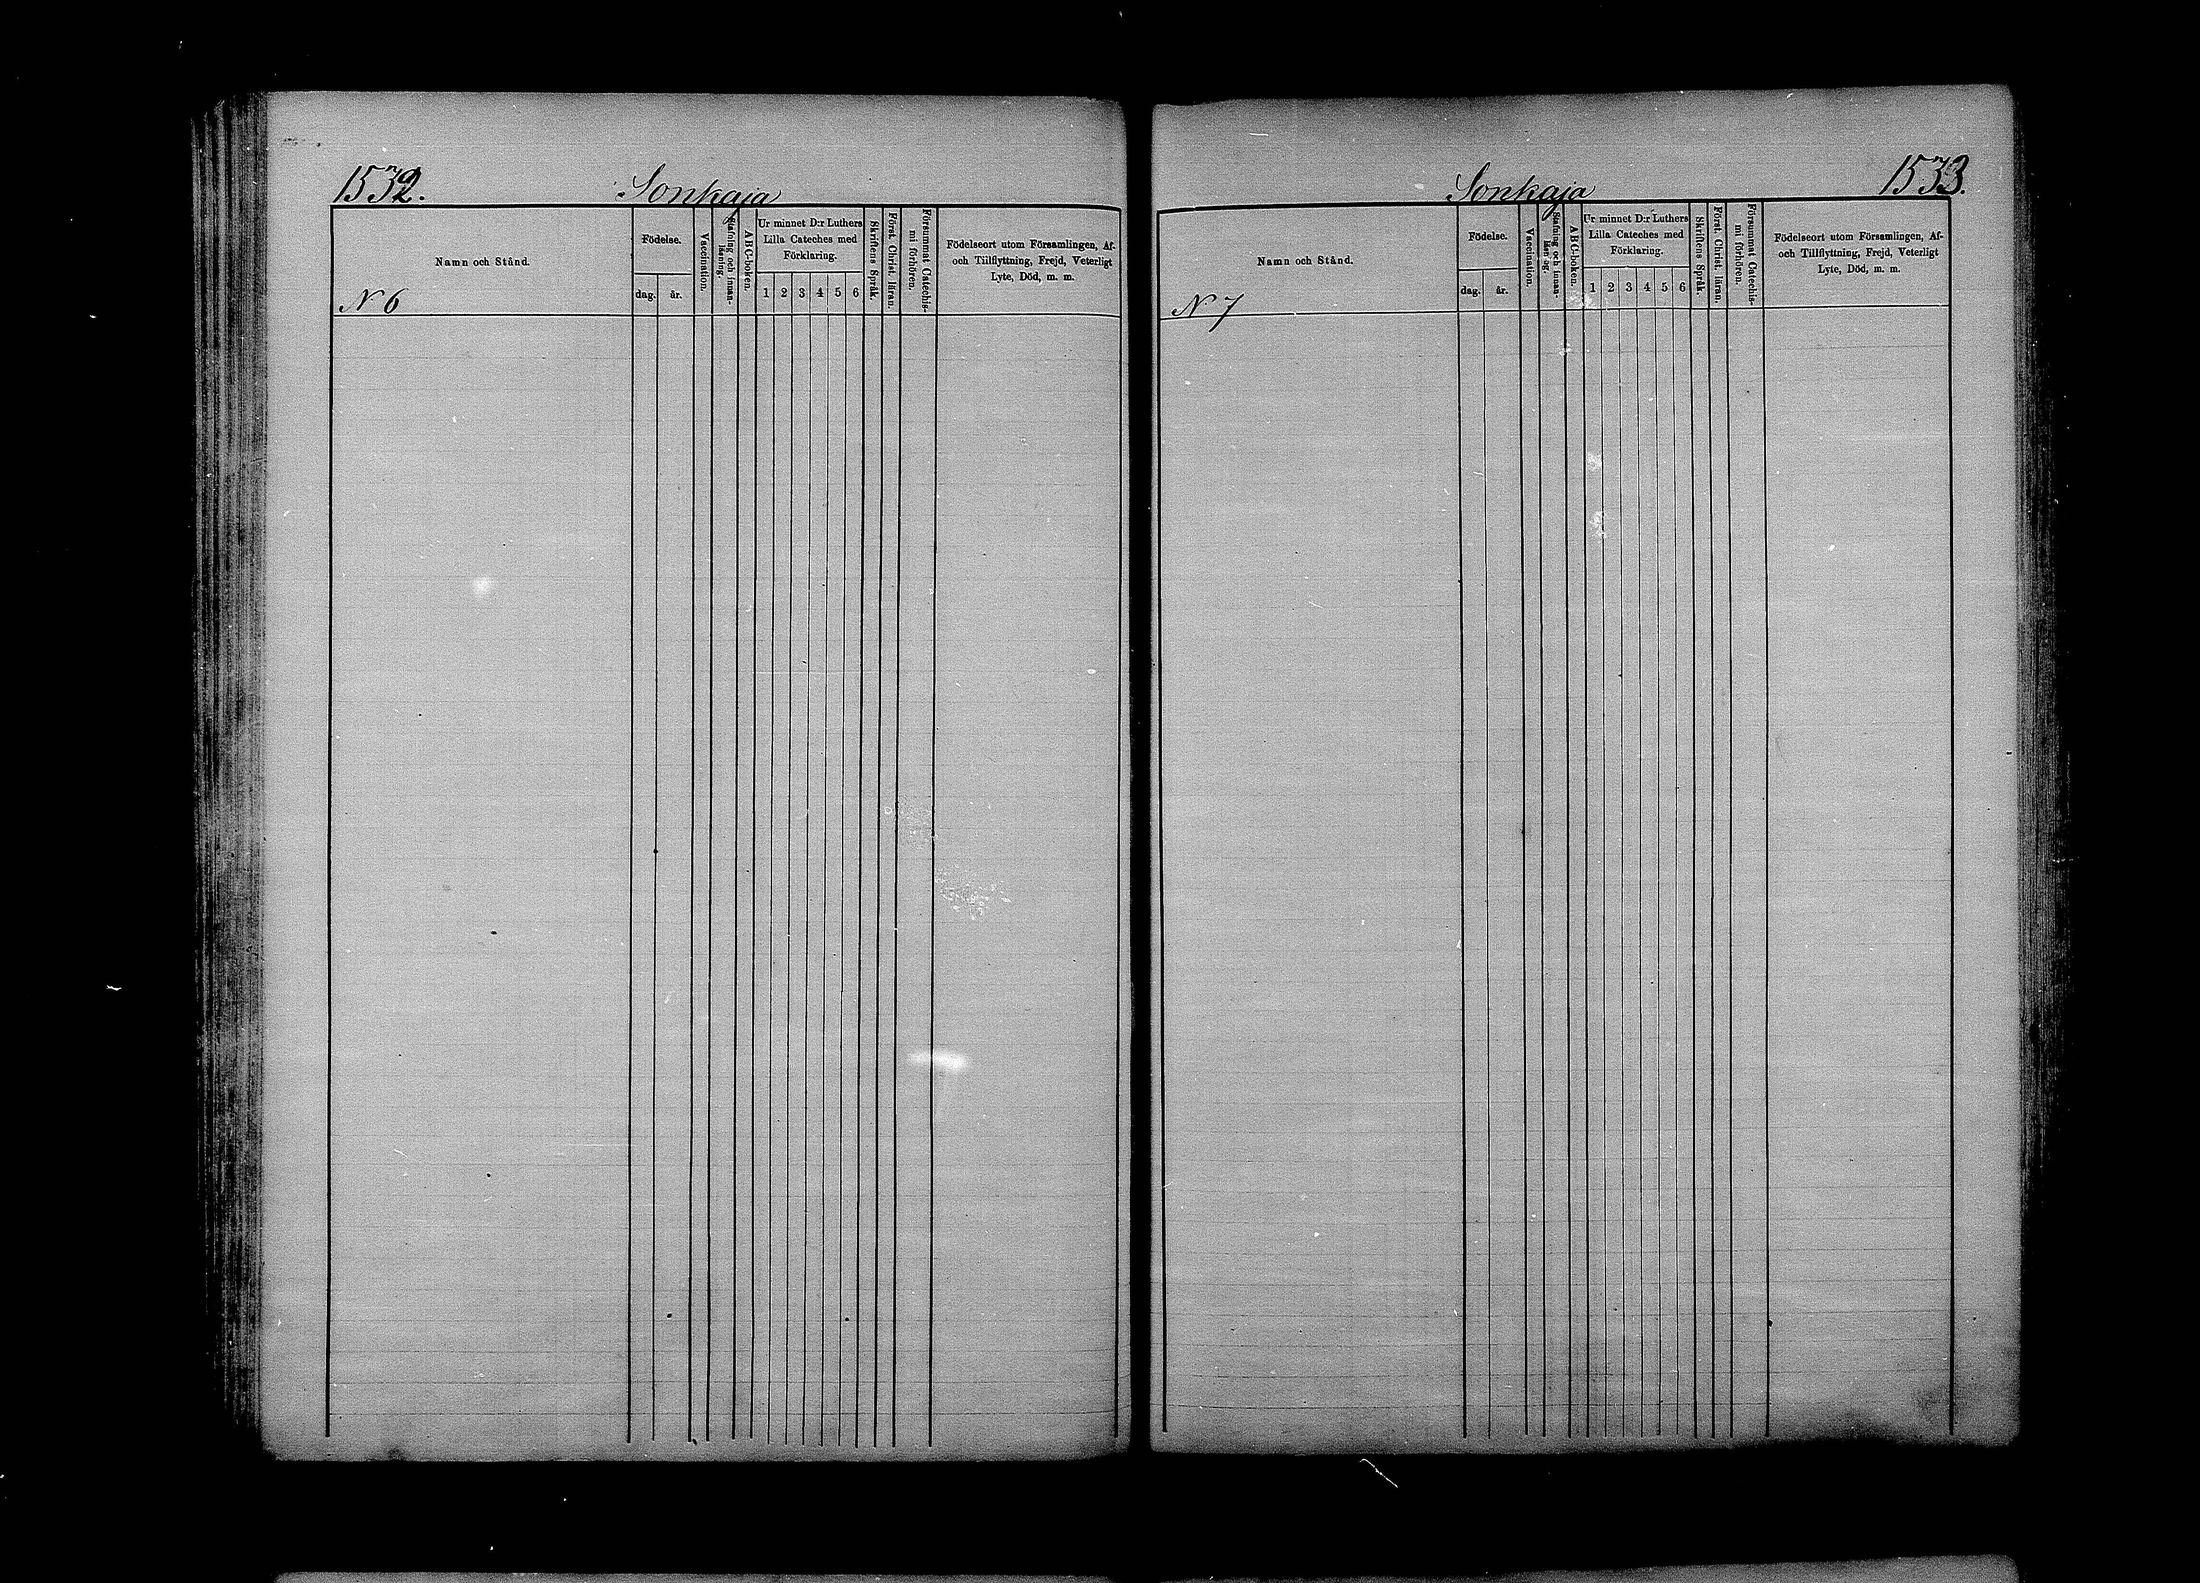 1532.
Sonkaja
Namn och Stånd.
N 6
Födelse.
dag. år.
Vaccination.
Stafning och innan-
läsning.
ABC-boken.
Ur minnet D:r Luthers
Lilla Cateches med
Förklaring.
1 2 3 4 5 6
Skriftens Språk.
Först. Christ. läran.
Försummat Catechis-
mi förhören.
Födelseort utom Församlingen, Af-
och Tillflyttning, Frejd, Veterligt
Lyte, Död, m. m.
1533.
Sonkaja
Namn och Stånd.
N. 7
Födelse.
dag. år.
Vaccination.
Stafning och innan-
läsning.
ABC-boken.
Ur minnet D:r Luthers
Lilla Cateches med
Förklaring.
1 2 3 4 5 6
Skriftens Språk.
Först. Christ. läran.
Försummat Catechis-
mi förhören.
Födelseort utom Församlingen, Af-
och Tillflyttning, Frejd, Veterligt
Lyte, Död, m. m.